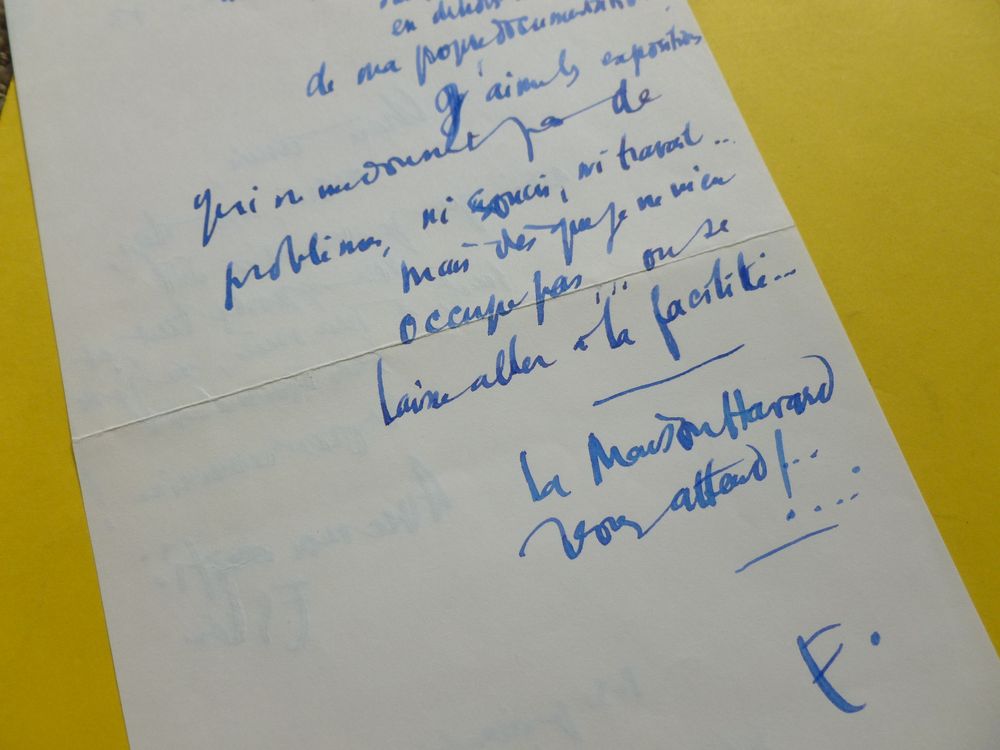 en dehors
de ma propre documentation.
J'aime les expositions
qui ne me donnent pas de
problèmes, ni soucis, ni travail...
mais dès que je ne m'en
occupe pas... on se
laisse aller à la facilité...
La Maison Havard
vous attend!...
F.